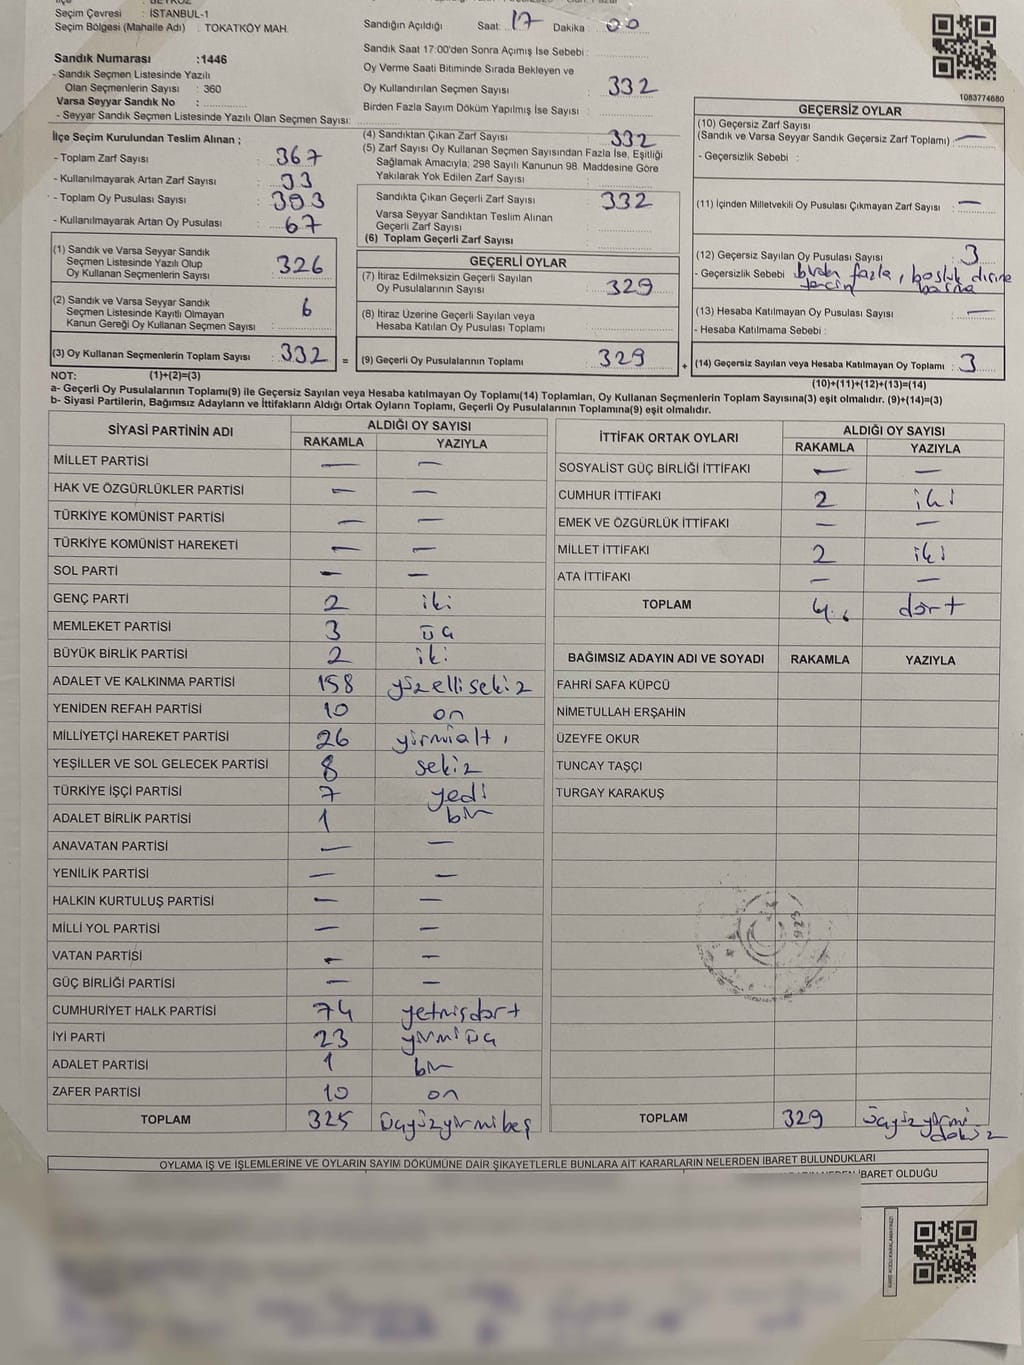 Seçim Çevresi : İSTANBUL-1
Seçim Bölgesi (Mahalle Adı) : TOKATKÖY MAH.
Sandık Numarası :1446
- Sandık Seçmen Listesinde Yazılı
Olan Seçmenlerin Sayısı : 360
Varsa Seyyar Sandık No :
- Seyyar Sandık Seçmen Listesinde Yazılı Olan Seçmen Sayısı:
Sandığın Açıldığı Saat: 17 Dakika : 00
Sandık Saat 17:00'den Sonra Açımış İse Sebebi :
Oy Verme Saati Bitiminde Sırada Bekleyen ve
Oy Kullandırılan Seçmen Sayısı : 332
Birden Fazla Sayım Döküm Yapılmış İse Sayısı :
1083774680
İlçe Seçim Kurulundan Teslim Alınan ;
- Toplam Zarf Sayısı : 367
- Kullanılmayarak Artan Zarf Sayısı : 33
- Toplam Oy Pusulası Sayısı : 393
- Kullanılmayarak Artan Oy Pusulası : 67
(1) Sandık ve Varsa Seyyar Sandık
Seçmen Listesinde Yazılı Olup
Oy Kullanan Seçmenlerin Sayısı : 326
(2) Sandık ve Varsa Seyyar Sandık
Seçmen Listesinde Kayıtlı Olmayan
Kanun Gereği Oy Kullanan Seçmen Sayısı : 6
(3) Oy Kullanan Seçmenlerin Toplam Sayısı : 332 =
(4) Sandıktan Çıkan Zarf Sayısı : 332
(5) Zarf Sayısı Oy Kullanan Seçmen Sayısından Fazla İse, Eşitliği
Sağlamak Amacıyla, 298 Sayılı Kanunun 98. Maddesine Göre
Yakılarak Yok Edilen Zarf Sayısı :
Sandıkta Çıkan Geçerli Zarf Sayısı : 332
Varsa Seyyar Sandıktan Teslim Alınan
Geçerli Zarf Sayısı :
(6) Toplam Geçerli Zarf Sayısı :
GEÇERLİ OYLAR
(7) İtiraz Edilmeksizin Geçerli Sayılan
Oy Pusulalarının Sayısı : 329
(8) İtiraz Üzerine Geçerli Sayılan veya
Hesaba Katılan Oy Pusulası Toplamı :
(9) Geçerli Oy Pusulalarının Toplamı : 329 +
GEÇERSİZ OYLAR
(10) Geçersiz Zarf Sayısı
(Sandık ve Varsa Seyyar Sandık Geçersiz Zarf Toplamı) : —
- Geçersizlik Sebebi :
(11) İçinden Milletvekili Oy Pusulası Çıkmayan Zarf Sayısı : —
(12) Geçersiz Sayılan Oy Pusulası Sayısı : 3
- Geçersizlik Sebebi : birden fazla, boşluk dışına
basma
(13) Hesaba Katılmayan Oy Pusulası Sayısı : —
- Hesaba Katılmama Sebebi :
(14) Geçersiz Sayılan veya Hesaba Katılmayan Oy Toplamı : 3
NOT: (1)+(2)=(3)
(10)+(11)+(12)+(13)=(14)
a- Geçerli Oy Pusulalarının Toplamı(9) ile Geçersiz Sayılan veya Hesaba katılmayan Oy Toplamı(14) Toplamları, Oy Kullanan Seçmenlerin Toplam Sayısına(3) eşit olmalıdır. (9)+(14)=(3)
b- Siyasi Partilerin, Bağımsız Adayların ve İttifakların Aldığı Ortak Oyların Toplamı, Geçerli Oy Pusulalarının Toplamına(9) eşit olmalıdır.
SİYASİ PARTİNİN ADI ALDIĞI OY SAYISI
RAKAMLA YAZIYLA
MİLLET PARTİSİ — —
HAK VE ÖZGÜRLÜKLER PARTİSİ — —
TÜRKİYE KOMÜNİST PARTİSİ — —
TÜRKİYE KOMÜNİST HAREKETİ — —
SOL PARTİ — —
GENÇ PARTİ 2 iki
MEMLEKET PARTİSİ 3 üç
BÜYÜK BİRLİK PARTİSİ 2 iki
ADALET VE KALKINMA PARTİSİ 158 yüzellisekiz
YENİDEN REFAH PARTİSİ 10 on
MİLLİYETÇİ HAREKET PARTİSİ 26 yirmialtı
YEŞİLLER VE SOL GELECEK PARTİSİ 8 sekiz
TÜRKİYE İŞÇİ PARTİSİ 7 yedi
ADALET BİRLİK PARTİSİ 1 bir
ANAVATAN PARTİSİ — —
YENİLİK PARTİSİ — —
HALKIN KURTULUŞ PARTİSİ — —
MİLLİ YOL PARTİSİ — —
VATAN PARTİSİ — —
GÜÇ BİRLİĞİ PARTİSİ — —
CUMHURİYET HALK PARTİSİ 74 yetmişdört
İYİ PARTİ 23 yirmiüç
ADALET PARTİSİ 1 bir
ZAFER PARTİSİ 10 on
TOPLAM 325 üçyüzyirmibeş
İTTİFAK ORTAK OYLARI ALDIĞI OY SAYISI
RAKAMLA YAZIYLA
SOSYALİST GÜÇ BİRLİĞİ İTTİFAKI — —
CUMHUR İTTİFAKI 2 iki
EMEK VE ÖZGÜRLÜK İTTİFAKI — —
MİLLET İTTİFAKI 2 iki
ATA İTTİFAKI — —
TOPLAM 4 dört
BAĞIMSIZ ADAYIN ADI VE SOYADI RAKAMLA YAZIYLA
FAHRİ SAFA KÜPCÜ
NİMETULLAH ERŞAHİN
ÜZEYFE OKUR
TUNCAY TAŞÇI
TURGAY KARAKUŞ
1923
TOPLAM 329 üçyüzyirmi
dokuz
OYLAMA İŞ VE İŞLEMLERİNE VE OYLARIN SAYIM DÖKÜMÜNE DAİR ŞİKAYETLERLE BUNLARA AİT KARARLARIN NELERDEN İBARET BULUNDUKLARI
İBARET OLDUĞU